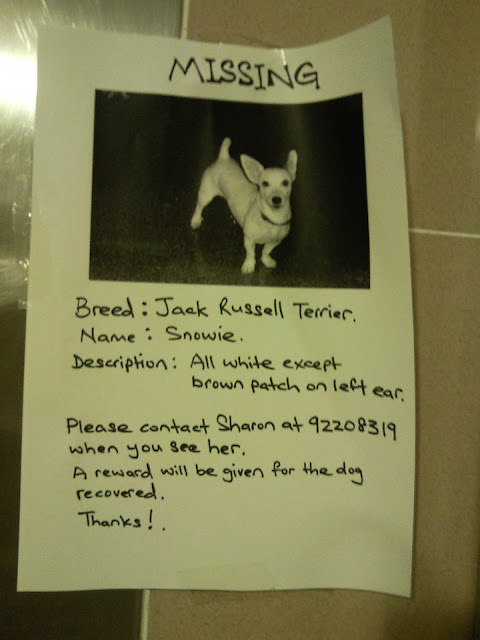 MISSING
Breed : Jack Russell Terrier.
Name : Snowie.
Description : All white except
brown patch on left ear.
Please contact Sharon at 92208319
when you see her.
A reward will be given for the dog
recovered.
Thanks!.